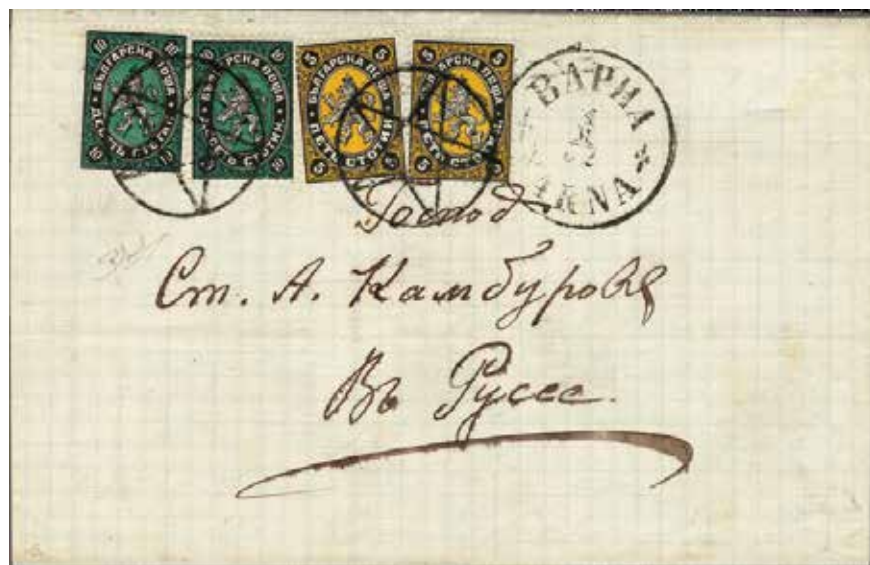 10 10 БЪЛГАРСКА ПОЩА ДЕСЕТЬ СТОТИН 10
10 10 БЪЛГАРСКА ПОЩА СТОТИН 10
5 5 БЪЛГАРСКА ПОЩА ПЕТЬ СТОТИН 5 5
5 5 БЪЛГАРСКА ПОЩА ПЕТЬ СТОТИН 5 5
ВАРНА
Господ
Ст. А. Камбурова
Въ Руссе.